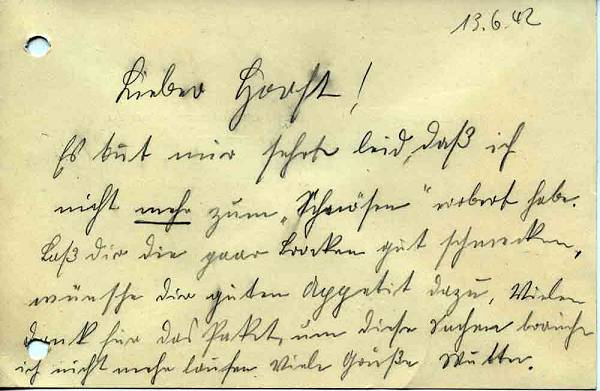 13.6.42
Lieber Horst!
Es tut mir sehr leid, daß ich
nicht mehr zum „Schmösen“ erobert habe.
Laß dir die paar Brocken gut schmecken,
wünsche dir guten Appetit dazu. Vielen
Dank für das Paket, um diese Sachen brauche
ich nicht mehr laufen. Viele Grüße Mutter.